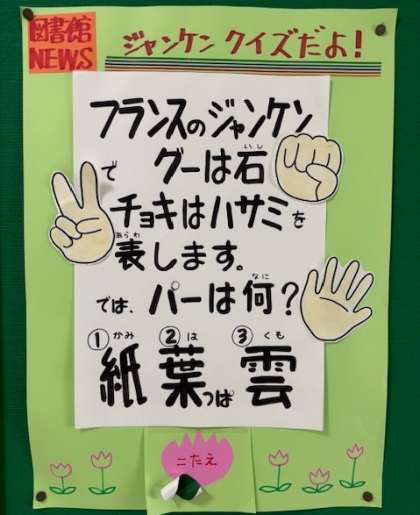 図書館
NEWS
ジャンケン クイズだよ!
フランスのジャンケン
で グーは石
いし
チョキはハサミを
表します。
あらわ
では、パーは何?
なに
①かみ ②は ③くも
紙 葉っぱ 雲
こたえ